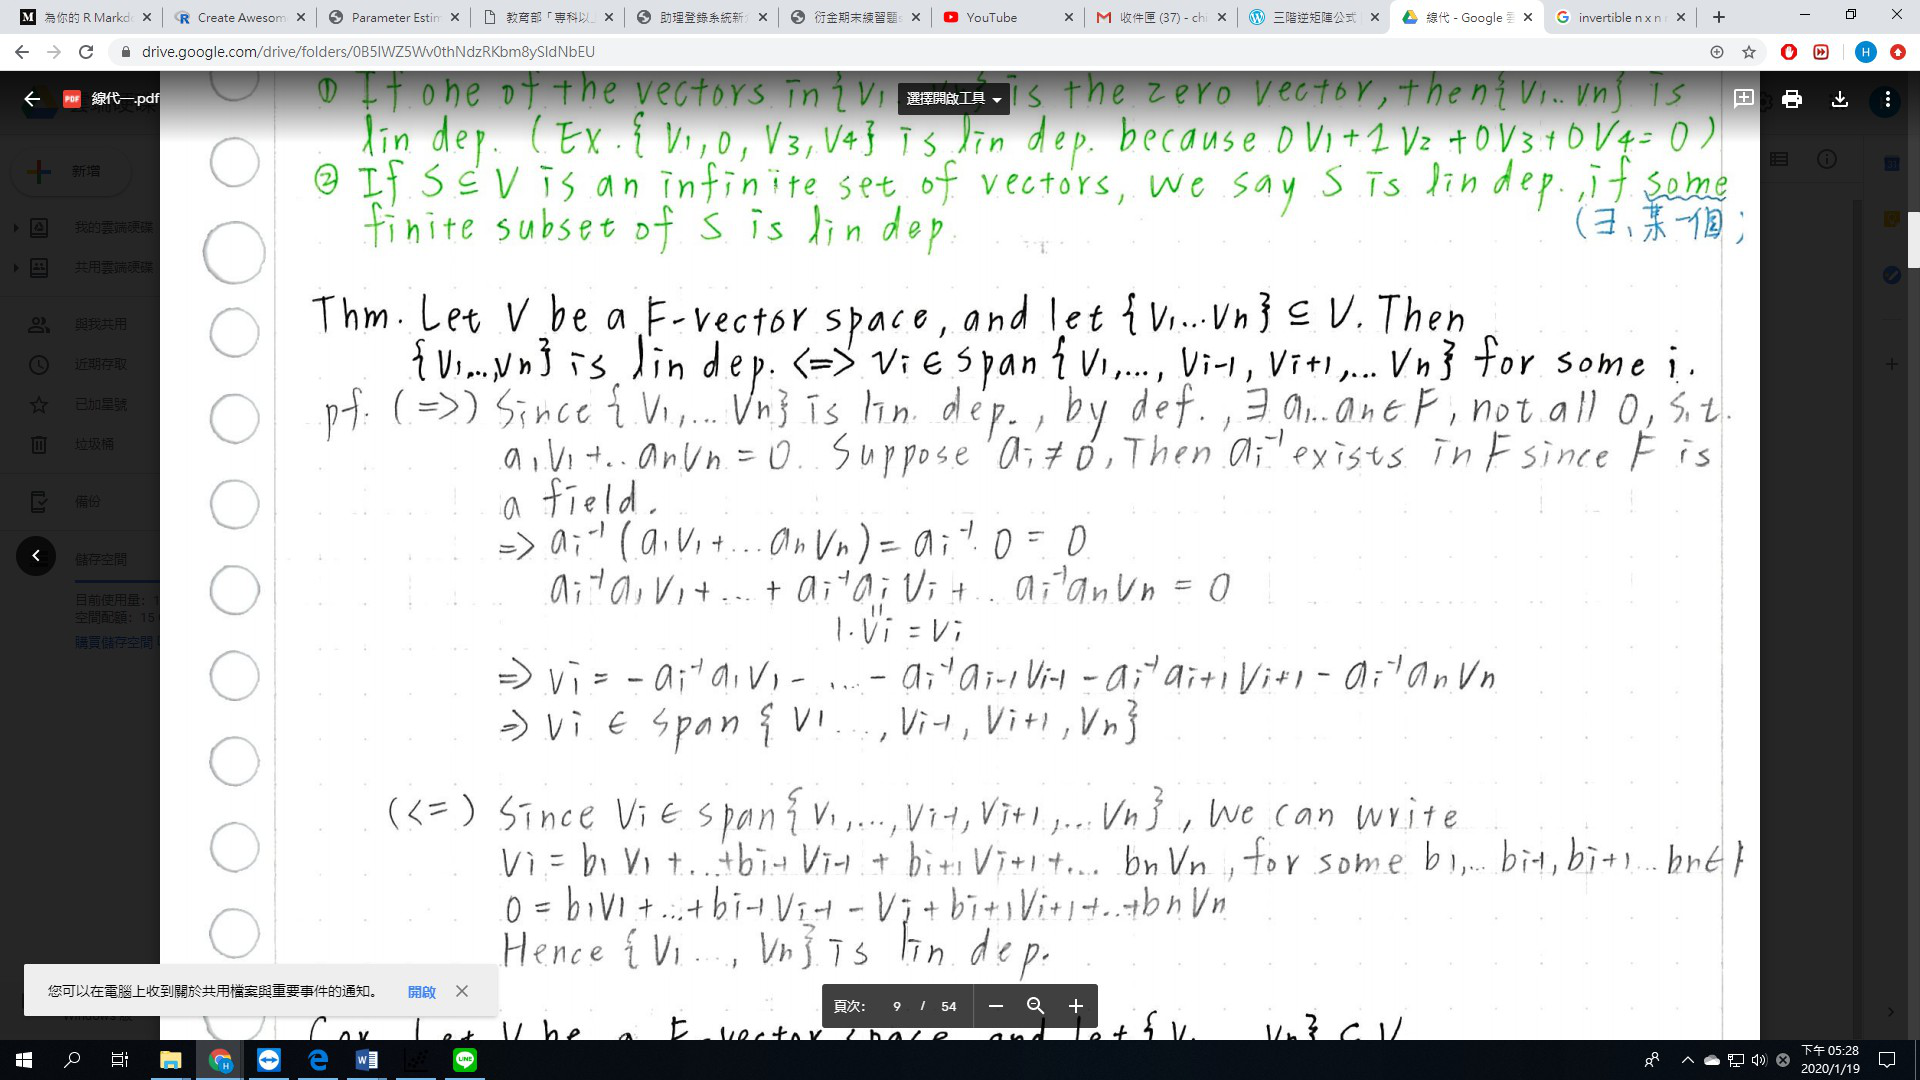 為你的 R Markd
Create Awesom
Parameter Estim
教育部「專科以上
助理登錄系統新
衍金期末練習題
YouTube
收件匣 (37) - ch
三階逆矩陣公式
線代 - Google 雲
invertible n x n
drive.google.com/drive/folders/0B5lWZ5Wv0thNdzRKbm8ySldNbEU
線代一.pdf
選擇開啟工具
① If one of the vectors in {V1 is the zero vector, then {V1..Vn} is
lin dep. (Ex. {V1, 0, V3, V4} is lin dep. because 0V1+1V2+0V3+0V4=0)
② If S⊆V is an infinite set of vectors, we say S is lin dep., if some
finite subset of S is lin dep.
(∃、某一個;
Thm. Let V be a F-vector space, and let {V1...Vn}⊆V. Then
{V1...,Vn} is lin dep. <=> Vi∈span{V1,..., Vi-1, Vi+1,...Vn} for some i.
pf. (=>) Since {V1,...Vn} is lin. dep., by def., ∃ a1...an∈F, not all 0, s.t.
a1V1+..anVn=0. Suppose ai≠0, Then ai⁻¹ exists in F since F is
a field.
=> ai⁻¹(a1V1+...anVn)=ai⁻¹·0=0
ai⁻¹a1V1+...+ai⁻¹aiVi+..ai⁻¹anVn=0
"
1·Vi=Vi
=> Vi=-ai⁻¹a1V1-...-ai⁻¹ai-1Vi-1-ai⁻¹ai+1Vi+1-ai⁻¹anVn
=> Vi∈span{V1...,Vi-1,Vi+1,Vn}
(<=) Since Vi∈span{V1,...,Vi-1,Vi+1,...Vn}, We can write
Vi=b1V1+...+bi-1Vi-1+bi+1Vi+1+...bnVn, for some b1,...bi-1,bi+1...bn∈F
0=b1V1+...+bi-1Vi-1-Vi+bi+1Vi+1+..+bnVn
Hence {V1...,Vn} is lin dep.
Cor. Let V be a F-vector space and let {V1...Vn}⊆V
新增
我的雲端硬碟
共用雲端硬碟
與我共用
近期存取
已加星號
垃圾桶
備份
儲存空間
目前使用量：1
空間配額：15
購買儲存空間
您可以在電腦上收到關於共用檔案與重要事件的通知。 開啟
頁次: 9 / 54
下午 05:28
2020/1/19